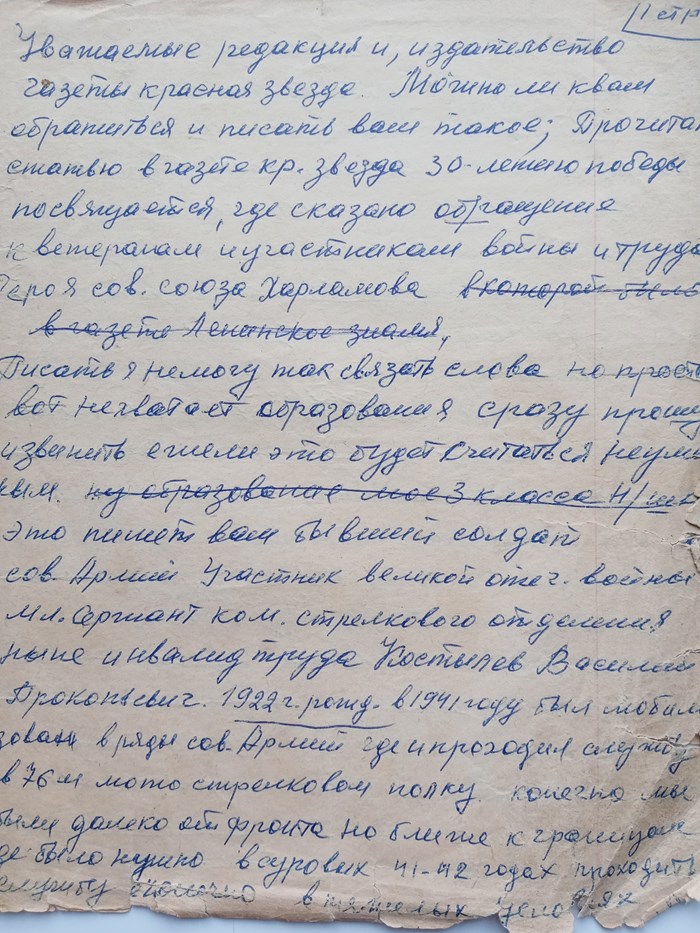 1 стр
Уважаемые редакция и, издательство
газеты красная звезда. Можно ли к вам
обратиться и писать вам такое; Прочитал
статью в газете кр. звезда 30-летию победы
посвящается, где сказано обращение
к ветеранам и участникам войны и труда
Героя сов. союза Харламова в которой было
в газете Ленинское знамя,
Писать я немогу так связать слова но просто
вот нехватает образования сразу прошу
извинить ежели это будет считаться неум
ным. ну образование мое 3 класса Н/шк
это пишет вам бывший солдат
сов. Армии Участник великой отеч. войны
мл. Сержант ком. стрелкового отделения
ныне инвалид труда Костылев Василий
Прокопьевич. 1922 г. рожд. в 1941 году был мобили
зован в ряды сов. Армии где и проходил службу
в 76 м мото стрелковом полку. конечно мы
были далеко от фронта но ближе к границам
где было нужно в суровых 41-42 годах проходить
службу в тяжелых условиях